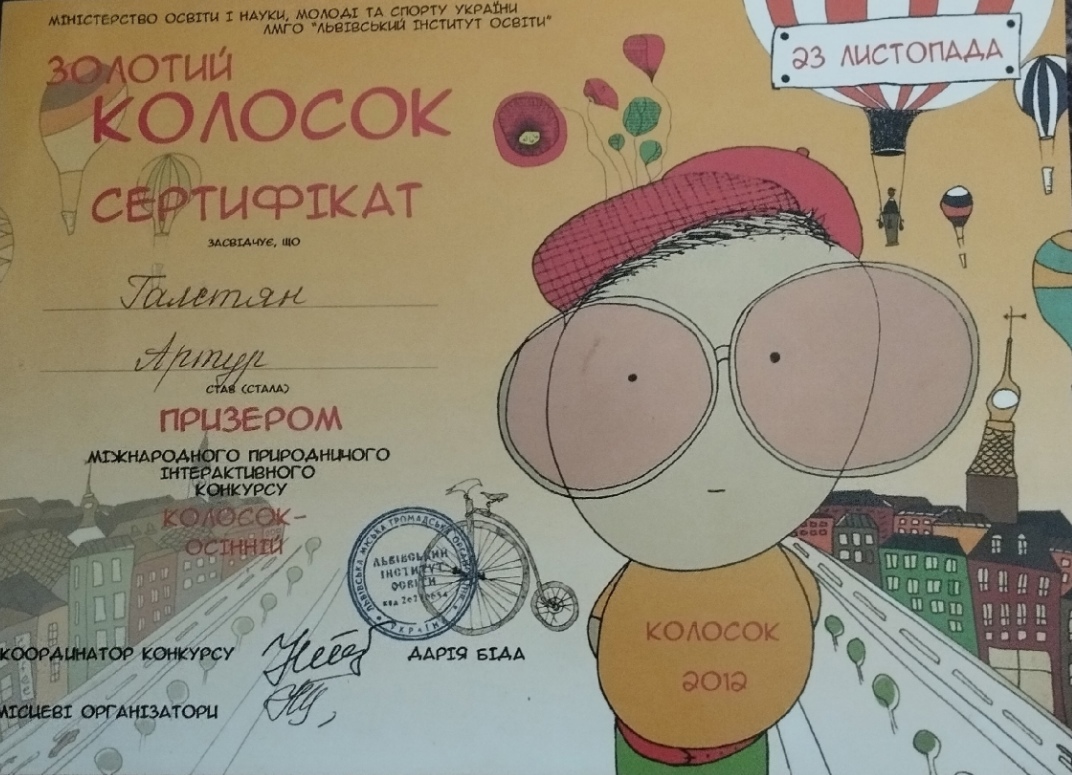 МІНІСТЕРСТВО ОСВІТИ І НАУКИ, МОЛОДІ ТА СПОРТУ УКРАЇНИ
ЛМГО "ЛЬВІВСЬКИЙ ІНСТИТУТ ОСВІТИ"
ЗОЛОТИЙ
КОЛОСОК
23 ЛИСТОПАДА
СЕРТИФІКАТ
ЗАСВІДЧУЄ, ЩО
Галстян
Артур
СТАВ (СТАЛА)
ПРИЗЕРОМ
МІЖНАРОДНОГО ПРИРОДНИЧОГО
ІНТЕРАКТИВНОГО
КОНКУРСУ
КОЛОСОК-
ОСІННІЙ
ЛЬВІВСЬКА МІСЬКА ГРОМАДСЬКА
ЛЬВІВСЬКИЙ
ІНСТИТУТ
ОСВІТИ
УКРАЇНА
КООРДИНАТОР КОНКУРСУ
ДАРІЯ БІДА
МІСЦЕВІ ОРГАНІЗАТОРИ
КОЛОСОК
2012